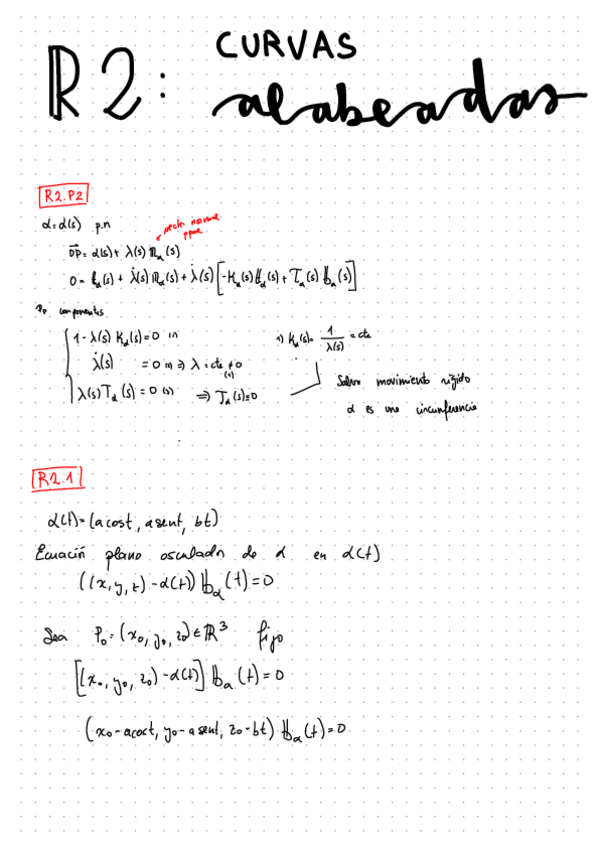 R2: CURVAS
alabeadas
R2.P2
α=α(s) p.n
vector normal
ppal
OP= α(s)+ λ(s) 𝕟α(s)
0= 𝕥α(s) + λ̇(s) 𝕟α(s) + λ̇(s) [-Kα(s) 𝕥α(s) + Tα(s) 𝕓α(s)]
componentes
1-λ(s) Kα(s)=0 (1)
1) Kα(s)= 1/λ(s) = cte
λ̇(s) = 0 (2) ⇒ λ = cte ≠ 0
(1)
λ(s) Tα(s) = 0 (3) ⇒ Tα(s)=0
Salvo movimiento rígido
α es una circunferencia
R2.1
α(t)=(a cost, a sent, bt)
Ecuación plano osculador de α en α(t)
((x, y, z) - α(t)) 𝕓α(t)=0
Sea P₀=(x₀, y₀, z₀)∈ℝ³ fijo
[(x₀, y₀, z₀) - α(t)] 𝕓α(t)=0
(x₀-a cost, y₀-a sent, z₀-bt) 𝕓α(t)=0